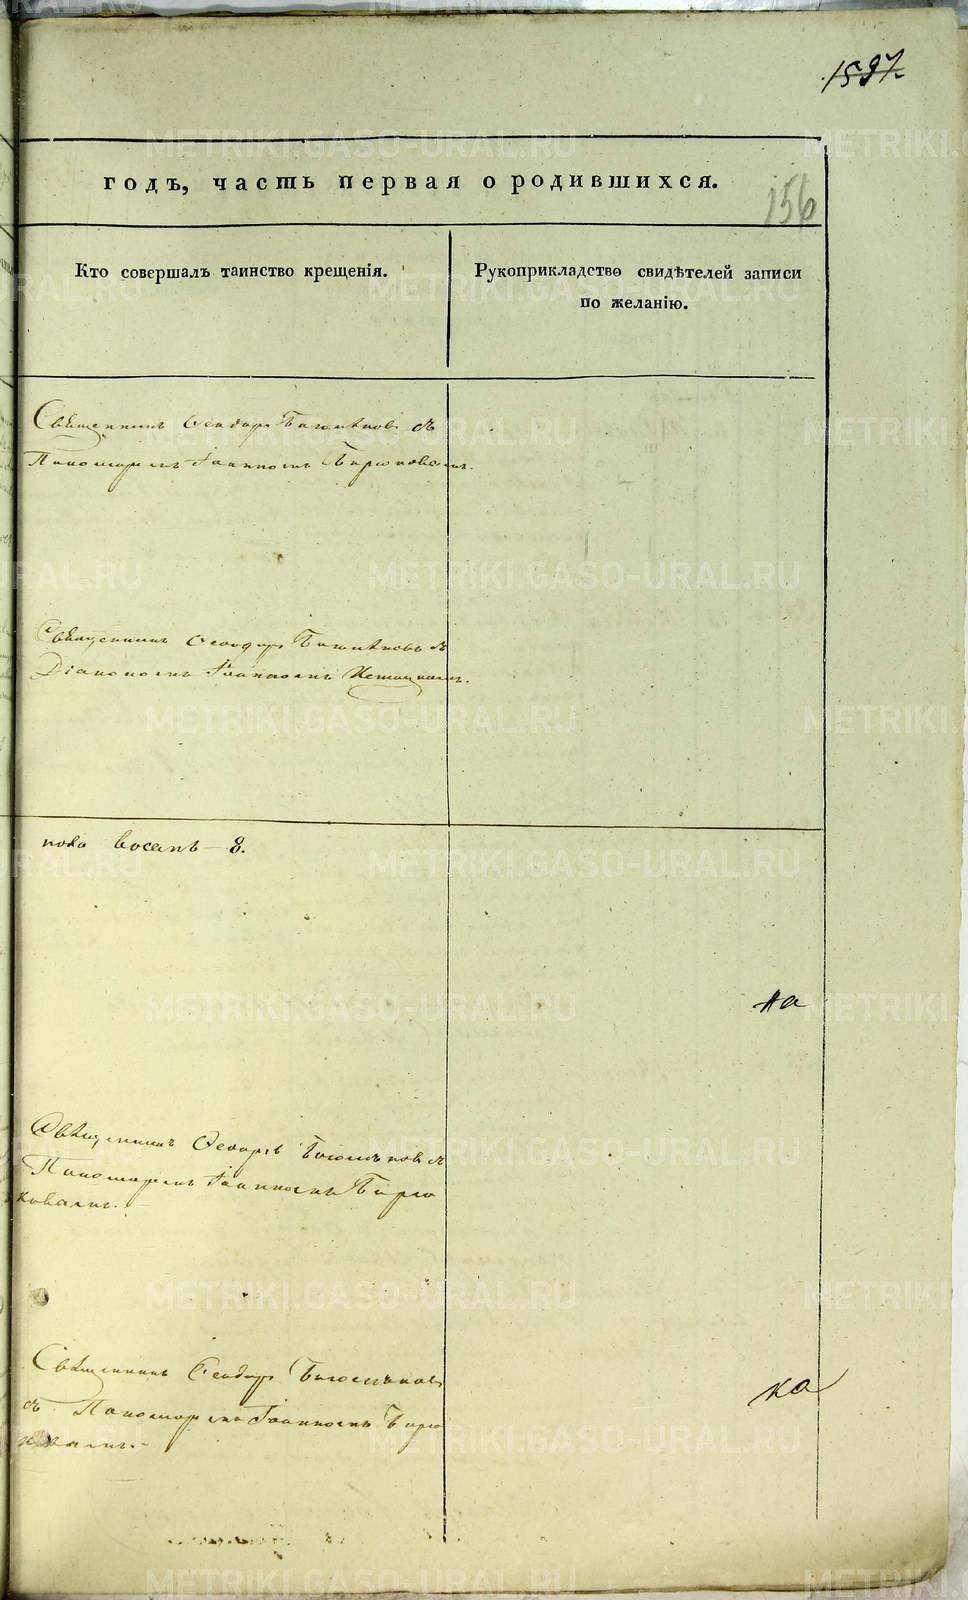 1597.
годъ, часть первая о родившихся.
156
Кто совершалъ таинство крещенія.
Рукоприкладство свидѣтелей записи
по желанію.
Священникъ Ѳеодоръ съ
Пономаремъ Іоанномъ Бирюковымъ.
Священникъ Ѳеодоръ съ
Діакономъ Іоанномъ
пола восемь 8.
на
Священникъ Ѳеодоръ съ
Пономаремъ Іоанномъ Бирю
ковымъ.
Священникъ Ѳеодоръ
съ Пономаремъ Іоанномъ Бирю
ковымъ.
ка
METRIKI.GASO-URAL.RU